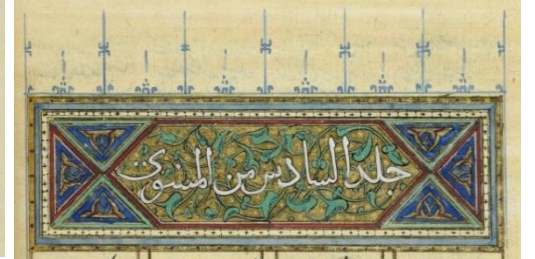 جلد السادس من المثنوی